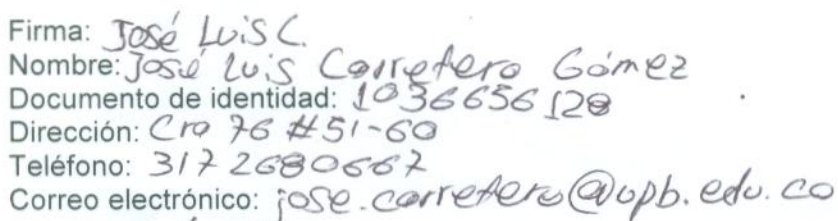 Firma: José Luis C.
Nombre: José Luis Carretero Gómez
Documento de identidad: 1036656128
Dirección: Cra 76 #51-60
Teléfono: 317 2680667
Correo electrónico: jose.carretero@upb.edu.co